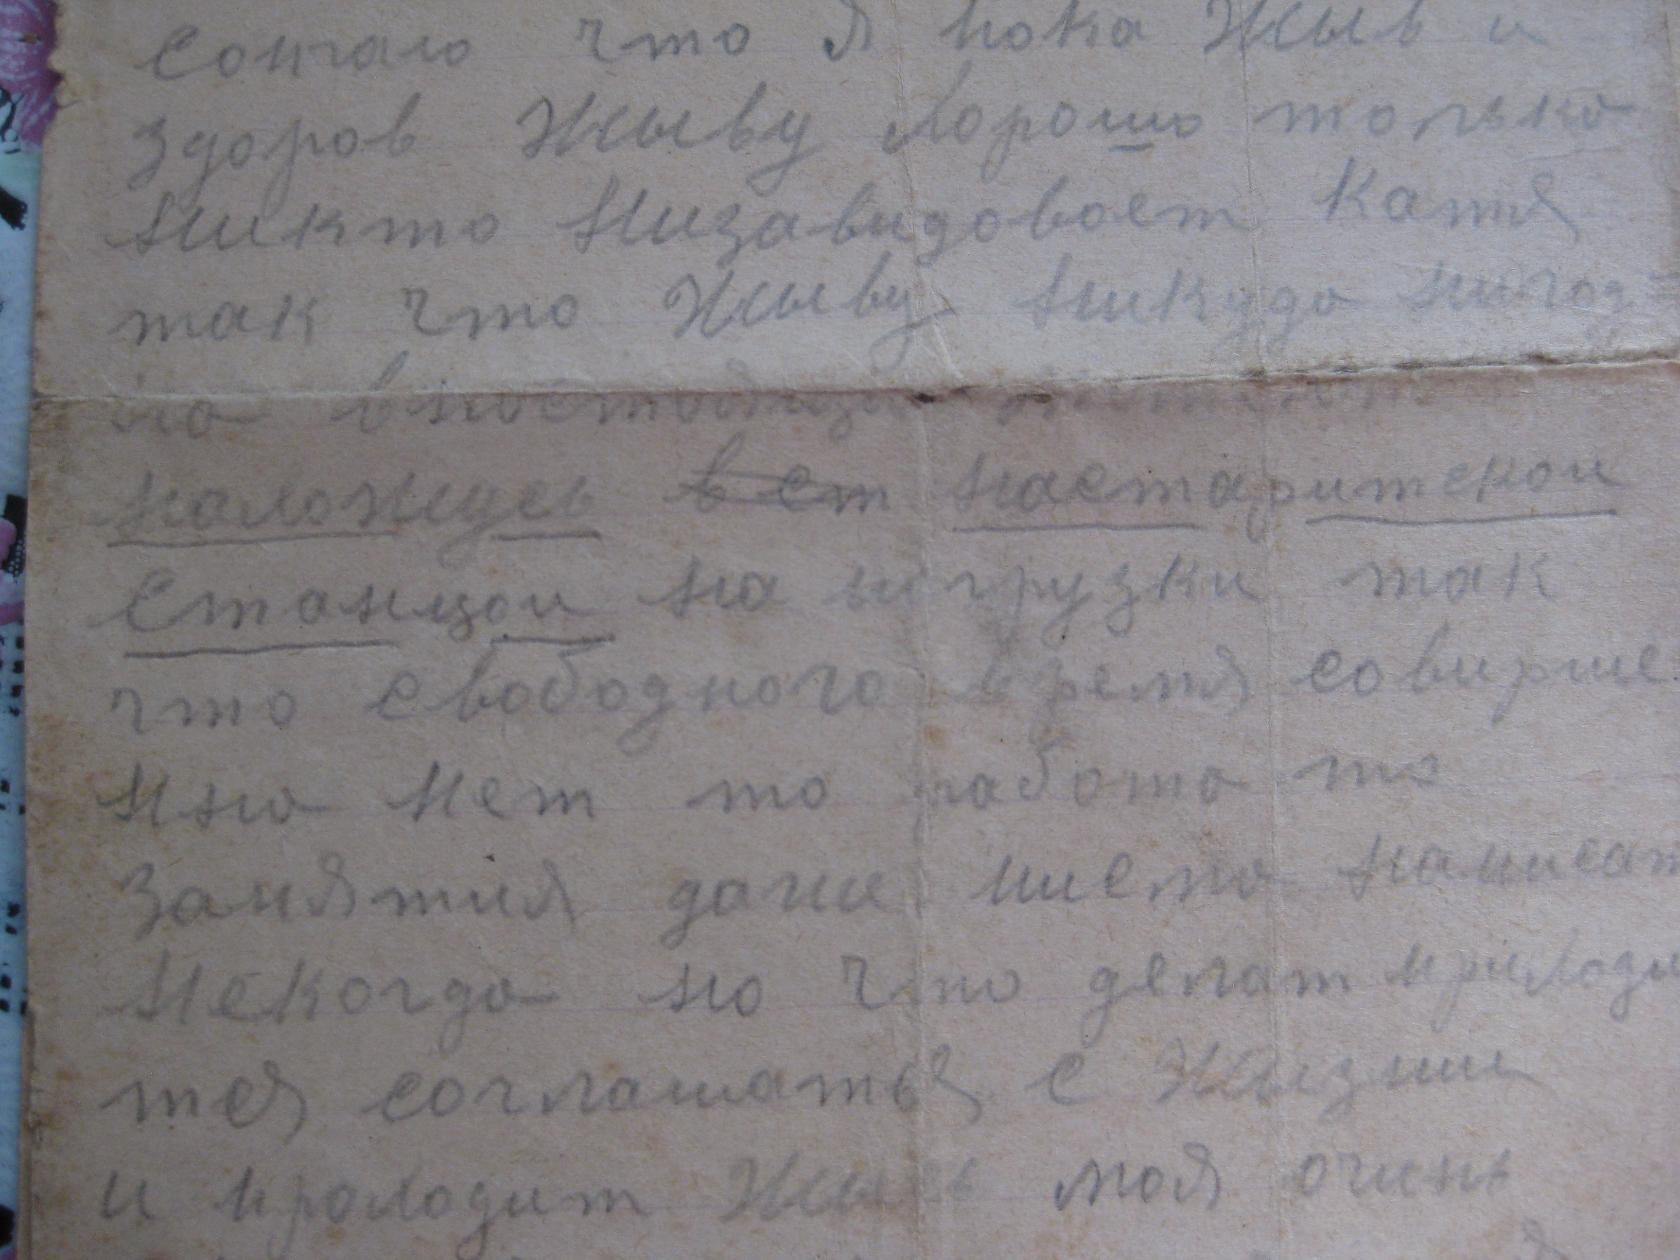 сопчаю что я пока Жыв и
здоров Жыву хорошо только
никто низавидовает Катя
так что Жыву никудо нигод
но внастоящи
наложусь в ст настаритской
станцои на нагрузки так
что свободного время совирше
нно нет то работо то
занятия даже писмо написат
некогдо но что делат приходи
тся соглашатья с Жызнии
и проходит Жы моя очинь